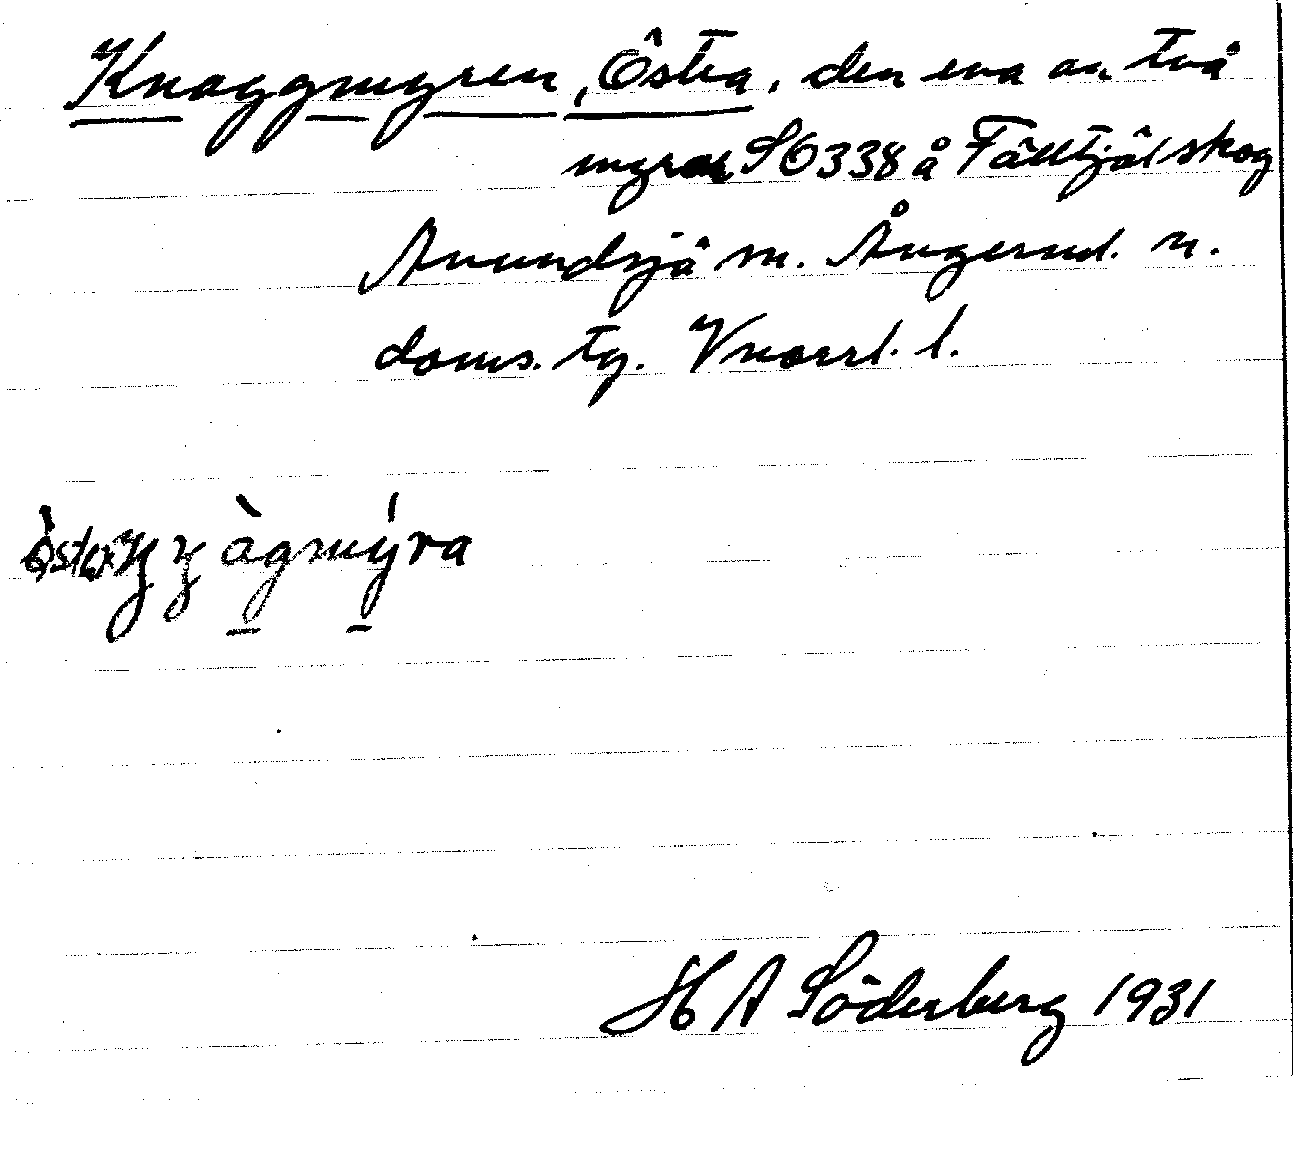 Knaggmyren, Östra, den ena av två
myrar SO338 å Fälltjäl skog
Anundsjö sn. Ångermd. n.
doms. tg. Vnorrl. l.
àgmýra
H A Söderberg 1931